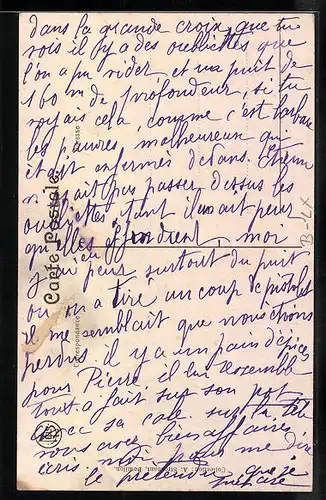 dans la grande croix que tu
vois il y a des oubliettes que
l'on a pu vider, et un puit de
160 m de profondeur, si tu
voyais cela, comme c'est barbare
les pauvres malheureux qui
étaient enfermés dedans. Etienne
n'osait pas passer dessus les
oubliettes, tant il avait peur
qu'elles effondrent, moi
j'ai eu peur surtout du puit
ou on a tiré un coup de pistolet
il me semblait que nous étions
perdus il y a un pain d'épices
pour Pierre il lui ressemble
tout a fait sur son pot
avec sa cane sur la tête
vous avez bien affaires
écris moi pour me dire
le que je
prépare
Carte Postale
Correspondance
Adresse
Collection : A.
B-LX